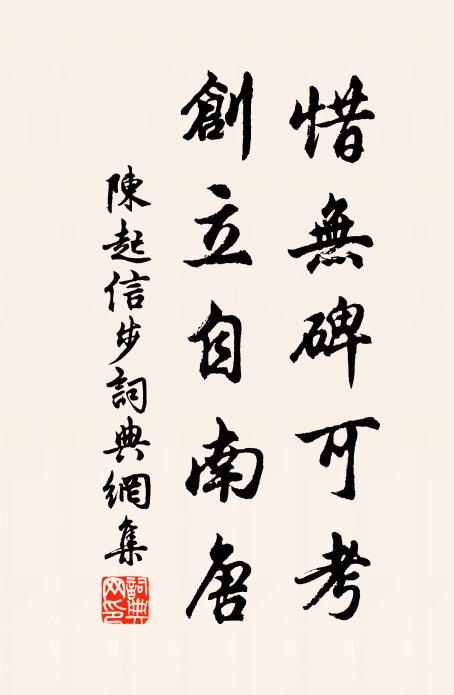 惜無碑可考
創立自南唐
陳起信步詞典網集
詞典網印